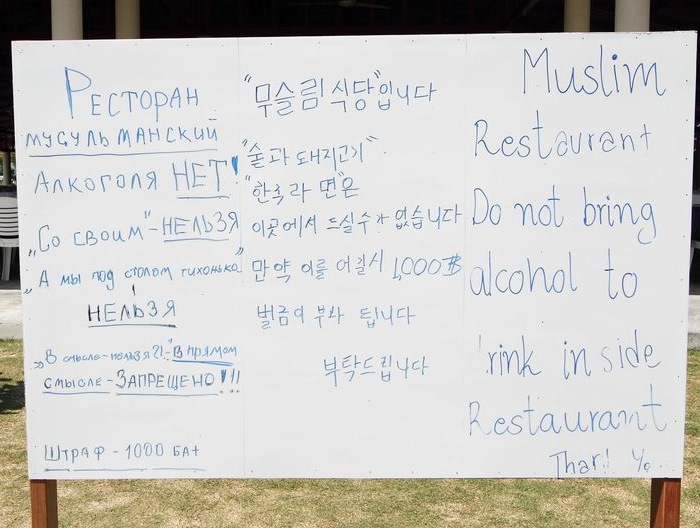 Ресторан
мусульманский
Алкоголя НЕТ!
"Со своим" - НЕЛЬЗЯ
"А мы под столом тихонько"
!
НЕЛЬЗЯ
"В смысле - нельзя?!" - В прямом
смысле - ЗАПРЕЩЕНО!!!
ШТРАФ - 1000 БАТ
"무슬림 식당"입니다
"술과 돼지고기"
"한국 라면"은
이곳에서 드실수가 없습니다
만약 이를 어길시 1,000฿
벌금이 부과 됩니다
부탁드립니다
Muslim
Restaurant
Do not bring
alcohol to
rink inside
Restaurant